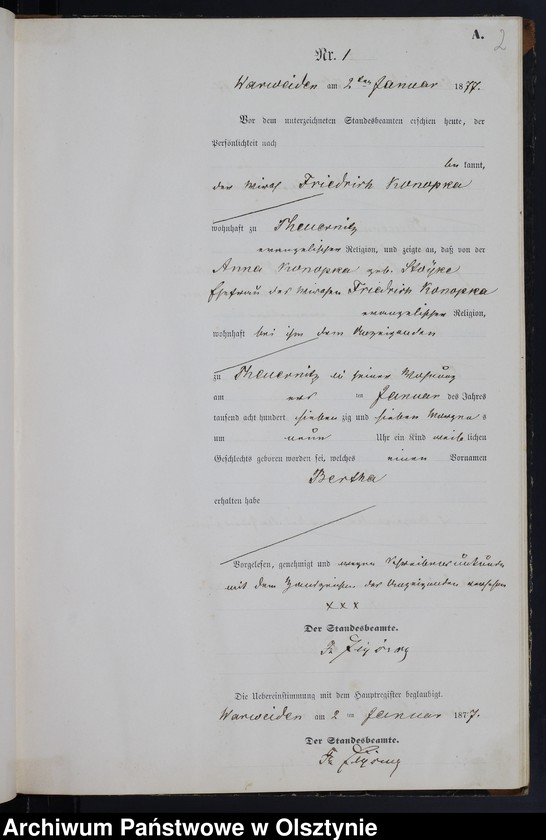 A.
2
Nr. 1
Warweiden am 2ten Januar 1877.
Vor dem unterzeichneten Standesbeamten erschien heute, der
Persönlichkeit nach
bekannt,
der Wirth Friedrich Konopka
wohnhaft zu Theuernitz
evangelischer Religion, und zeigte an, daß von der
Anna Konopka geb.
Ehefrau des Wirthen Friedrich Konopka
evangelischer Religion,
wohnhaft bei ihm dem Anzeigenden
zu Theuernitz in seiner Wohnung
am ersten Januar des Jahres
tausend acht hundert siebenzig und sieben Morgens
um neun Uhr ein Kind weiblichen
Geschlechts geboren worden sei, welches einen Vornamen
Bertha
erhalten habe
Vorgelesen, genehmigt und wegen Schreibensunkunde
mit dem Handzeichen des Anzeigenden versehen
x x x
Der Standesbeamte.
Die Uebereinstimmung mit dem Hauptregister beglaubigt.
Warweiden am 2ten Januar 1877.
Der Standesbeamte.
Archiwum Państwowe w Olsztynie